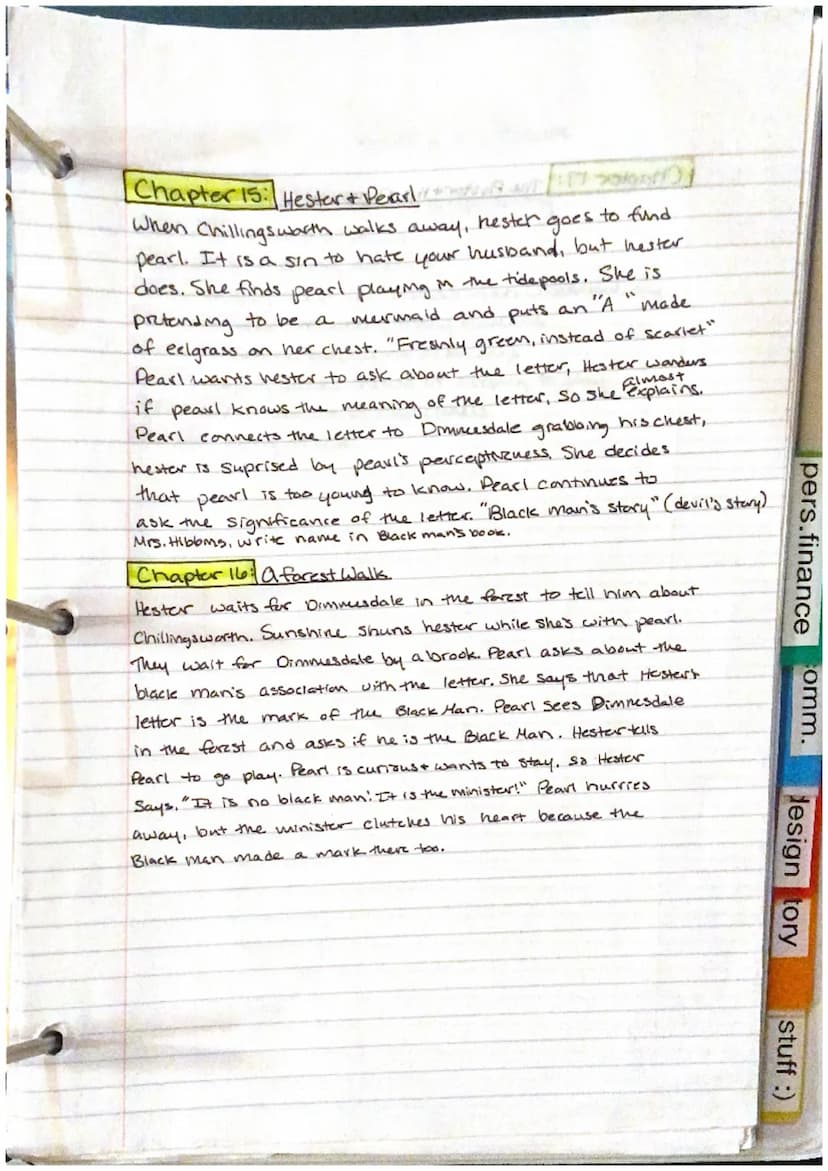 Chapter 15: Hester + Pearl
When Chillingsworth walks away, hester goes to find
pearl. It is a sin to hate your husband, but hester
does. She finds pearl playing in the tidepools. She is
pretending to be a mermaid and puts an "A" made
of eelgrass on her chest. "Freshly green, instead of scarlet"
Pearl wants hester to ask about the letter, Hester wonders
if pearl knows the meaning of the letter, so she almost explains.
Pearl connects the letter to Dimmesdale grabbing his chest,
hester is suprised by pearl's perceptiveness. She decides
that pearl is too young to know. Pearl continues to
ask the significance of the letter. "Black man's story" (devil's story)
Mrs. Hibbins, write name in Black man's book.
Chapter 16: A forest Walk
Hester waits for Dimmesdale in the forest to tell him about
Chillingsworth. Sunshine shuns hester while she's with pearl.
They wait for Dimmesdale by a brook. Pearl asks about the
black man's association with the letter. She says that Hester's
letter is the mark of the Black Man. Pearl sees Dimmesdale
in the forest and asks if he is the Black Man. Hester tells
Pearl to go play. Pearl is curious + wants to stay. So Hester
says, "It is no black man! It is the minister!" Pearl hurries
away, but the minister clutches his heart because the
Black man made a mark there too.
pers.finance
omm.
design
tory
stuff :)